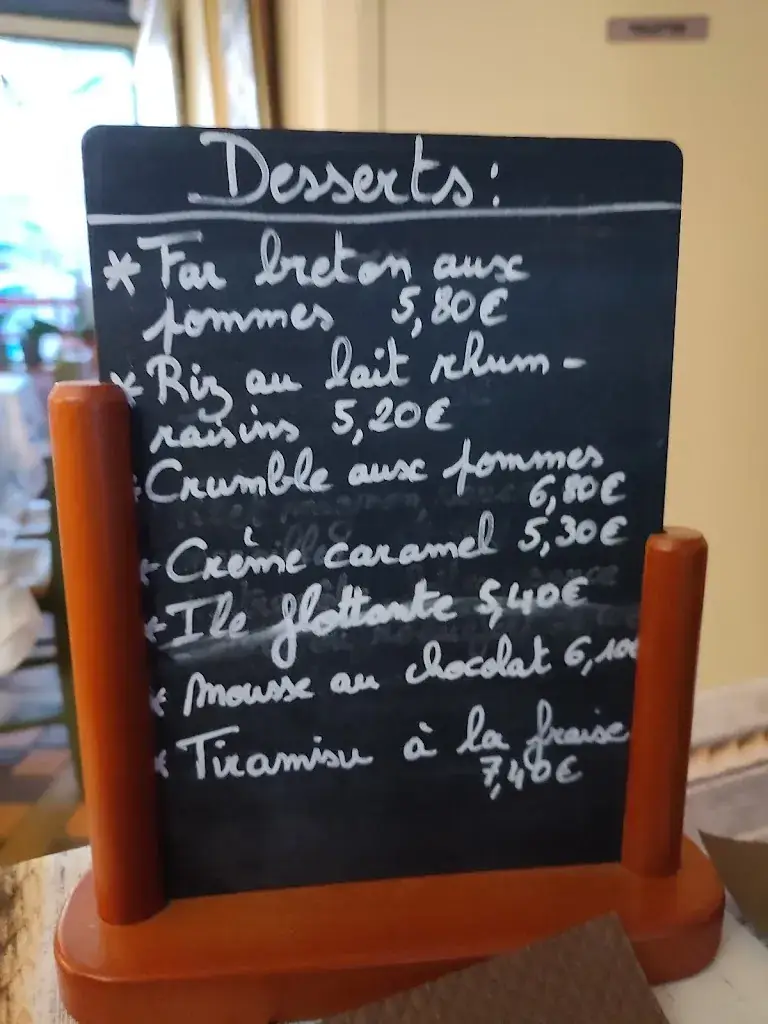 Desserts :
* Far breton aux
pommes 5,80€
* Riz au lait rhum -
raisins 5,20€
* Crumble aux pommes
6,80€
* Crème caramel 5,30€
* Ile flottante 5,40€
* Mousse au chocolat 6,10€
* Tiramisu à la fraise
7,40€